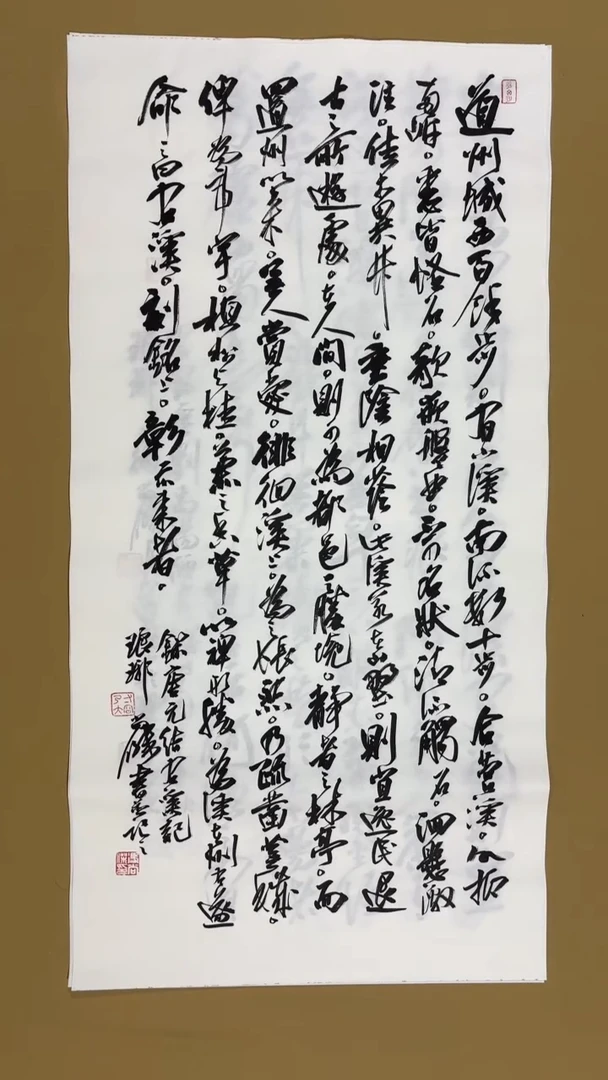 道州城西百餘步。有小溪。南流數十步。合營溪。水抵
兩岸。悉皆怪石。欹嵌盤曲。不可名狀。清流觸石。洄懸激
注。佳木異竹。垂陰相蔭。此溪若在山野。則宜逸民退
士之所遊處。在人間。則可為都邑之勝境。靜者之林亭。而
置州以来。無人賞愛。徘徊溪上。為之悵然。乃疏凿蕪穢。
俾為亭宇。植松与桂。兼之香草。以裨形勝。為溪在州右遂
命之曰右溪。刻銘上。彰示来者。
錄唐元结右溪記
琅琊書并記之